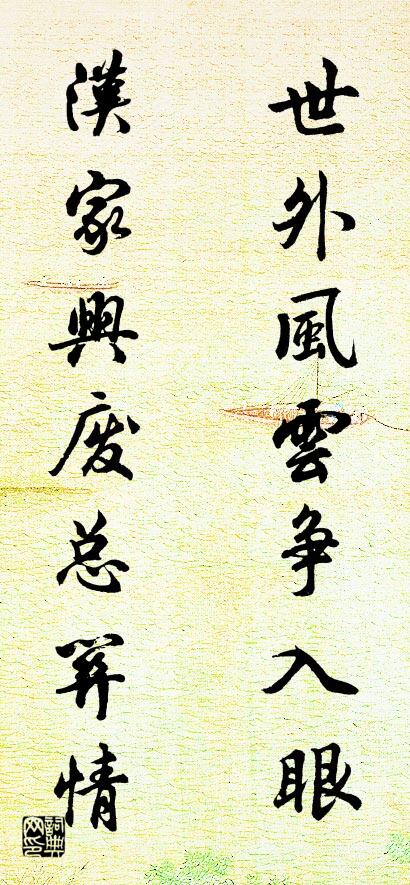 世外風雲争入眼
漢家興废总關情
詞典
网印